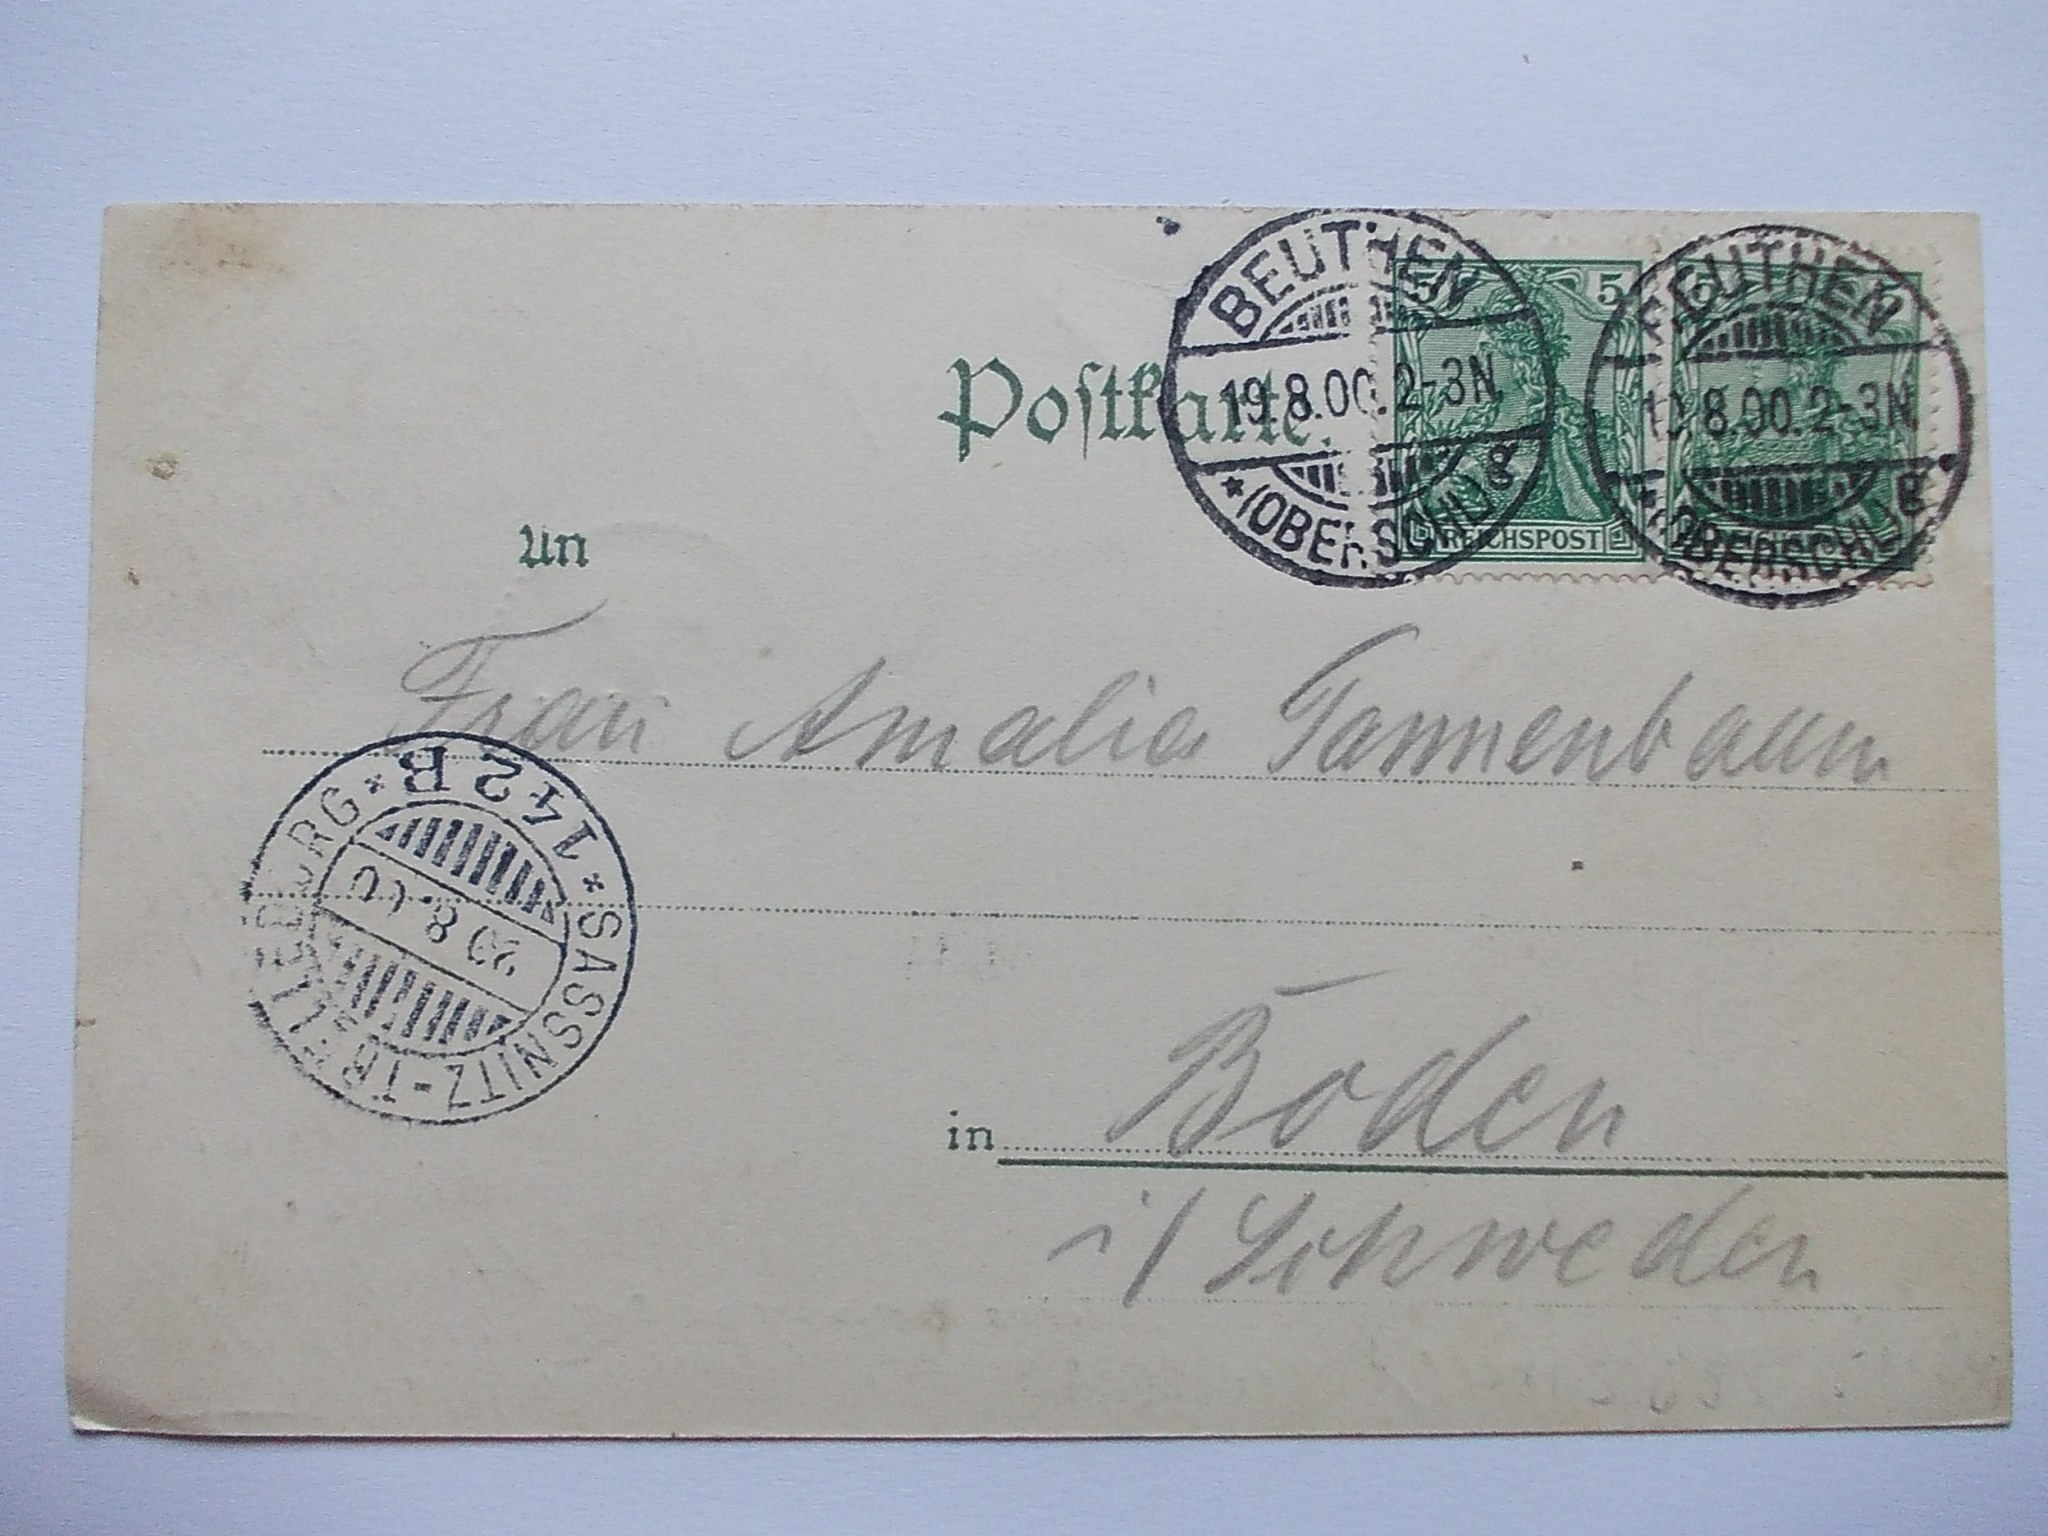 BEUTHEN
19.8.00.2-3N.
*(OBERSCHL) g
BEUTHEN
19.8.00.2-3N.
*(OBERSCHL) g
5 5
REICHSPOST
Postkarte.
An
Frau Amalie Tannenbaum
*SASSNITZ-TRELLEBORG*
142 B
20 8.00
in Boden
i/ Schweden